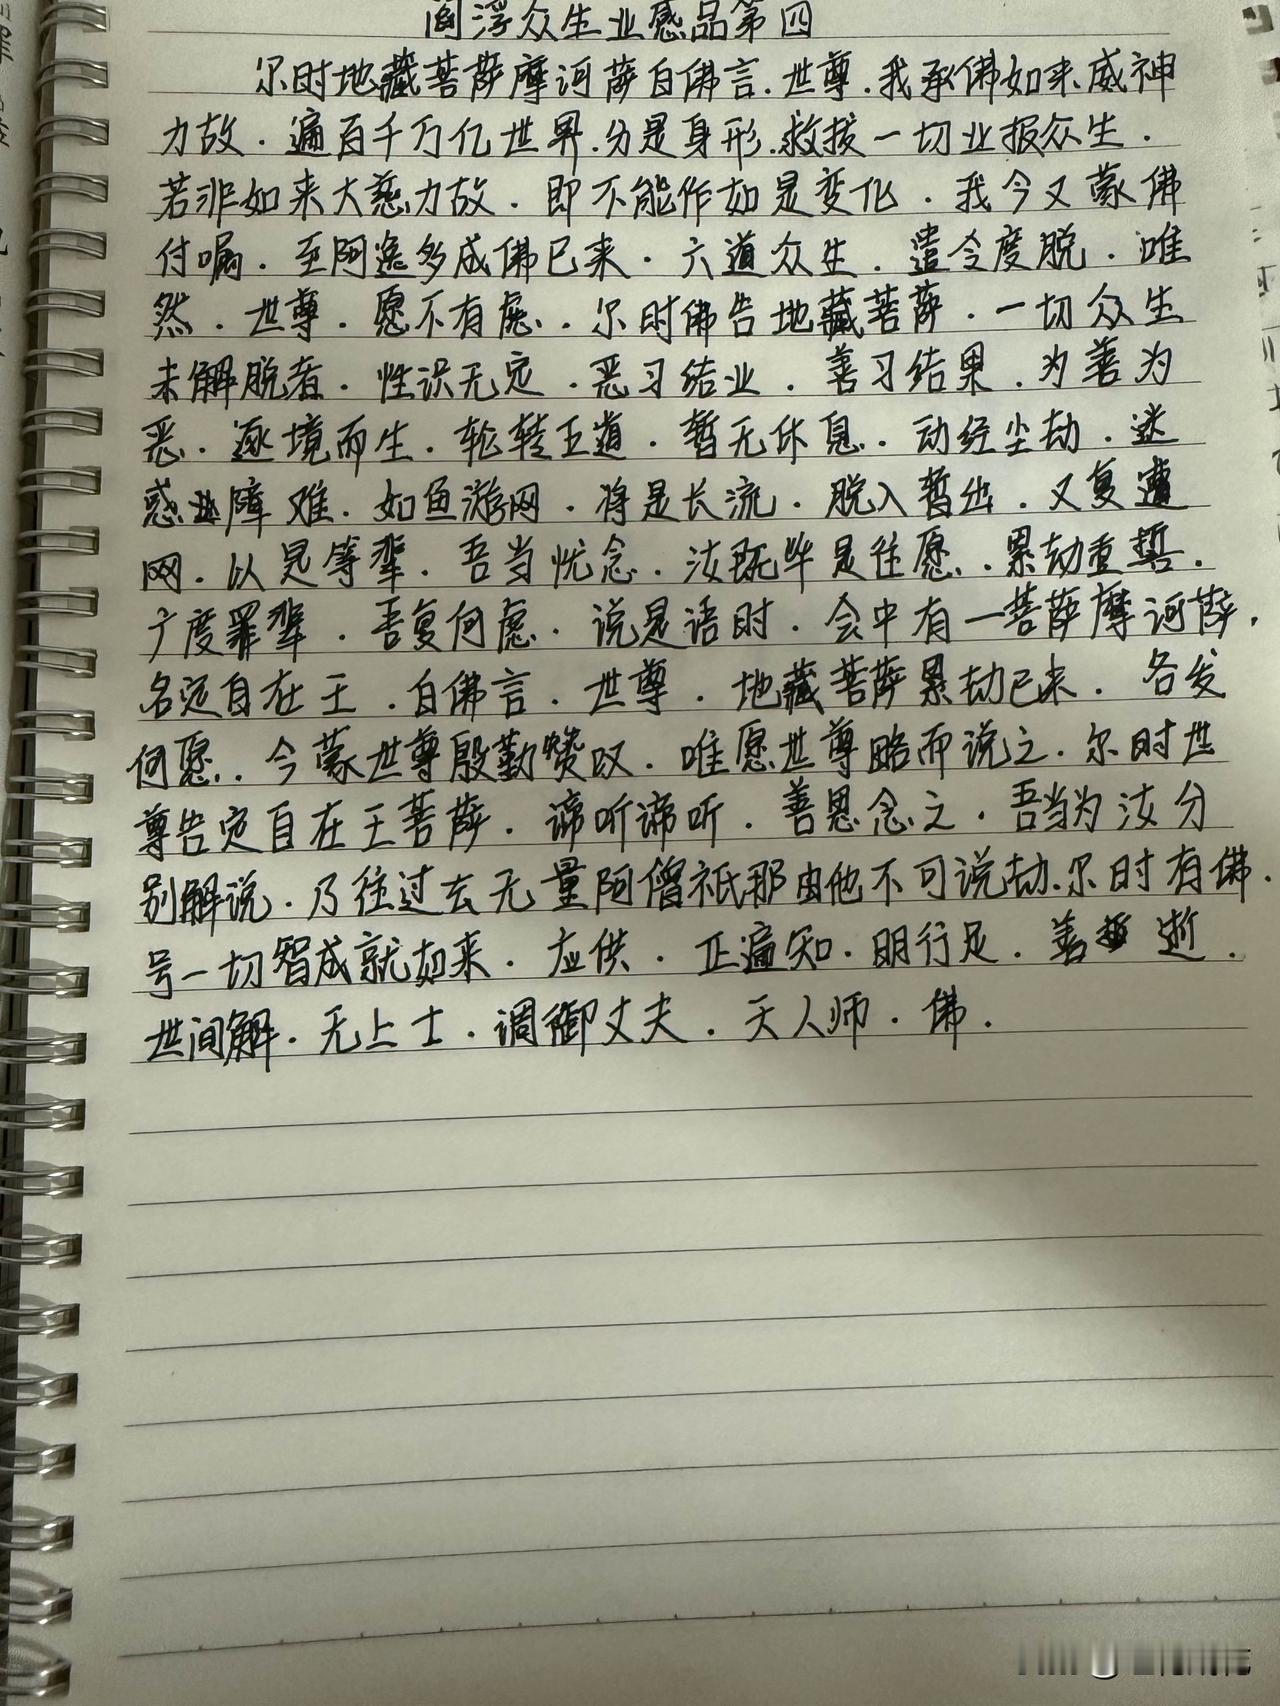 阎浮众生业感品第四
尔时地藏菩萨摩诃萨白佛言.世尊.我承佛如来威神
力故.遍百千万亿世界.分是身形.救拔一切业报众生.
若非如来大慈力故.即不能作如是变化.我今又蒙佛
付嘱.至阿逸多成佛已来.六道众生.遣令度脱.唯
然.世尊.愿不有虑.尔时佛告地藏菩萨.一切众生
未解脱者.性识无定.恶习结业.善习结果.为善为
恶.逐境而生.轮转五道.暂无休息.动经尘劫.迷
惑业障难.如鱼游网.将是长流.脱入暂出.又复遭
网.以是等辈.吾当忧念.汝既毕是往愿.累劫重誓.
广度罪辈.吾复何虑.说是语时.会中有一菩萨摩诃萨.
名定自在王.白佛言.世尊.地藏菩萨累劫已来.各发
何愿.今蒙世尊殷勤赞叹.唯愿世尊略而说之.尔时世
尊告定自在王菩萨.谛听谛听.善思念之.吾当为汝分
别解说.乃往过去无量阿僧祇那由他不可说劫.尔时有佛.
号一切智成就如来.应供.正遍知.明行足.善逝.
世间解.无上士.调御丈夫.天人师.佛.